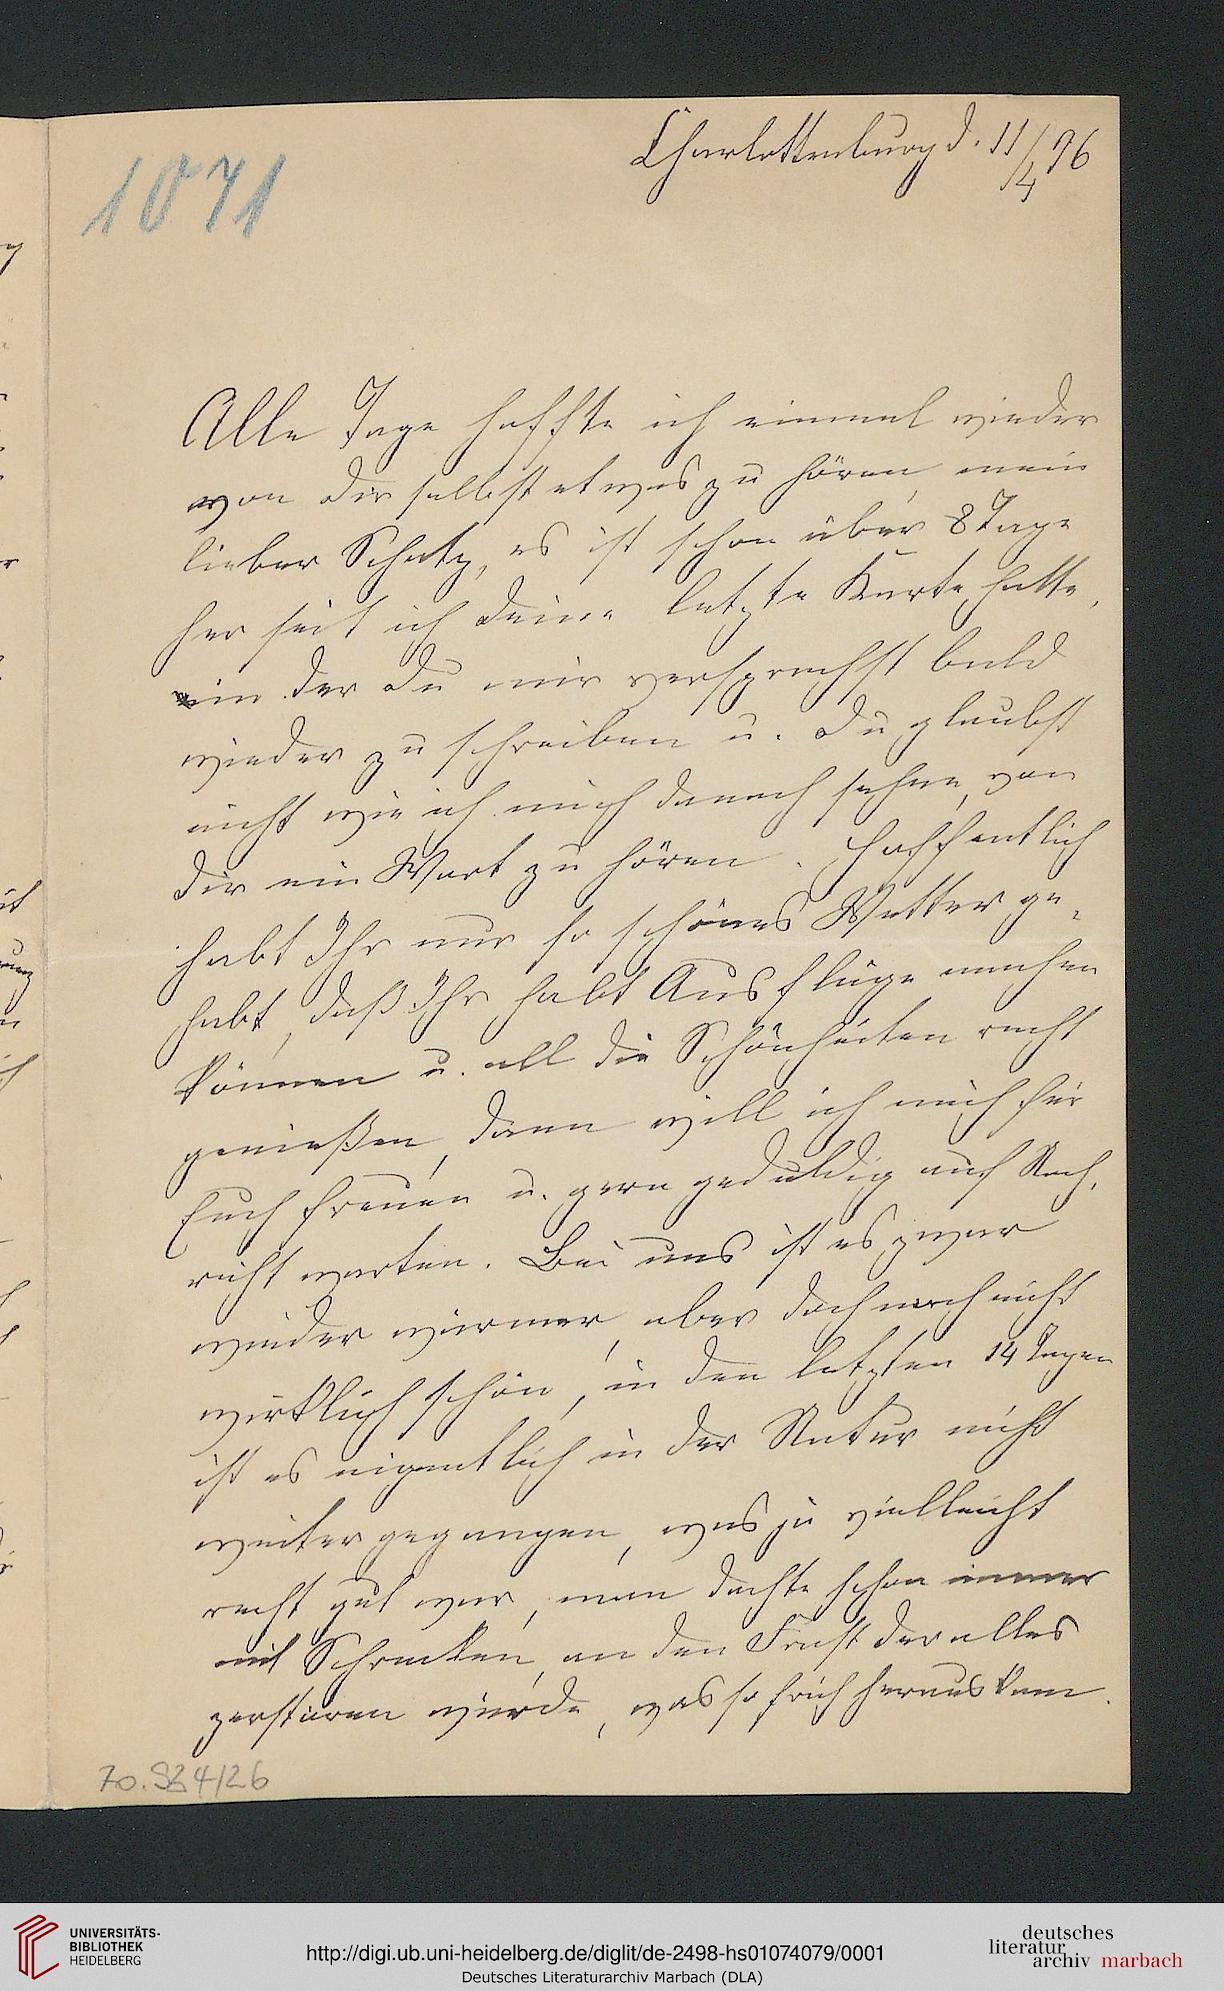 Charlottenburg d. 11/4 96
1071
Alle Tage hoffte ich einmal wieder
von Dir selbst etwas zu hören, mein
lieber Schatz, es ist schon über 8 Tage
her seit ich Deine letzte Karte hatte,
in der Du mir versprachst bald
wieder zu schreiben u. Du glaubst
nicht wie ich mich danach sehne, von
Dir ein Wort zu hören. Hoffentlich
habt Ihr nur so schönes Wetter ge-
habt, daß Ihr habt Ausflüge machen
können u. all die Schönheiten recht
genießen, dann will ich mich für
Euch freuen u. gern geduldig auf Nach-
richt warten. Bei uns ist es zwar
wieder wärmer, aber doch noch nicht
wirklich schön, in den letzten 14 Tagen
ist es eigentlich in der Natur nicht
weiter gegangen, was ja vielleicht
recht gut war, man dachte schon immer
mit Schrecken an den Frost der alles
zerstören würde, was so früh herauskam.
70.924/26
UNIVERSITÄTS-
BIBLIOTHEK
HEIDELBERG
http://digi.ub.uni-heidelberg.de/diglit/de-2498-hs01074079/0001
Deutsches Literaturarchiv Marbach (DLA)
deutsches
literatur
archiv marbach